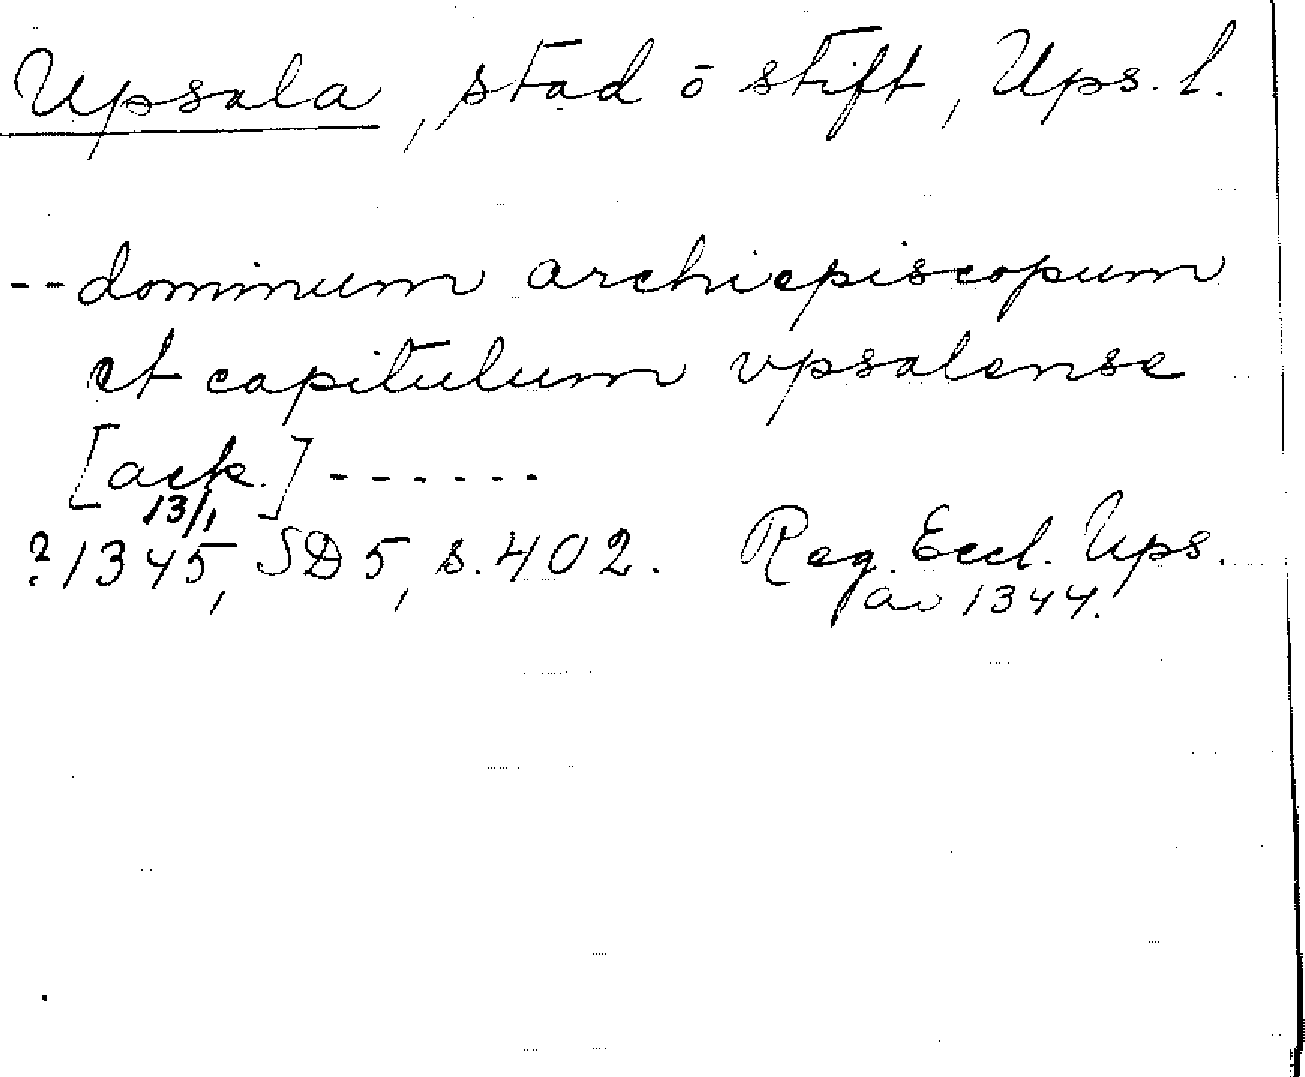 Upsala, stad ō stift, Ups. l.
-- dominum archiepiscopum
et capitulum vpsalense
[ack.] ------
13/1
? 1345, SD 5, s. 402. Reg. Eccl. Ups.
av 1344.